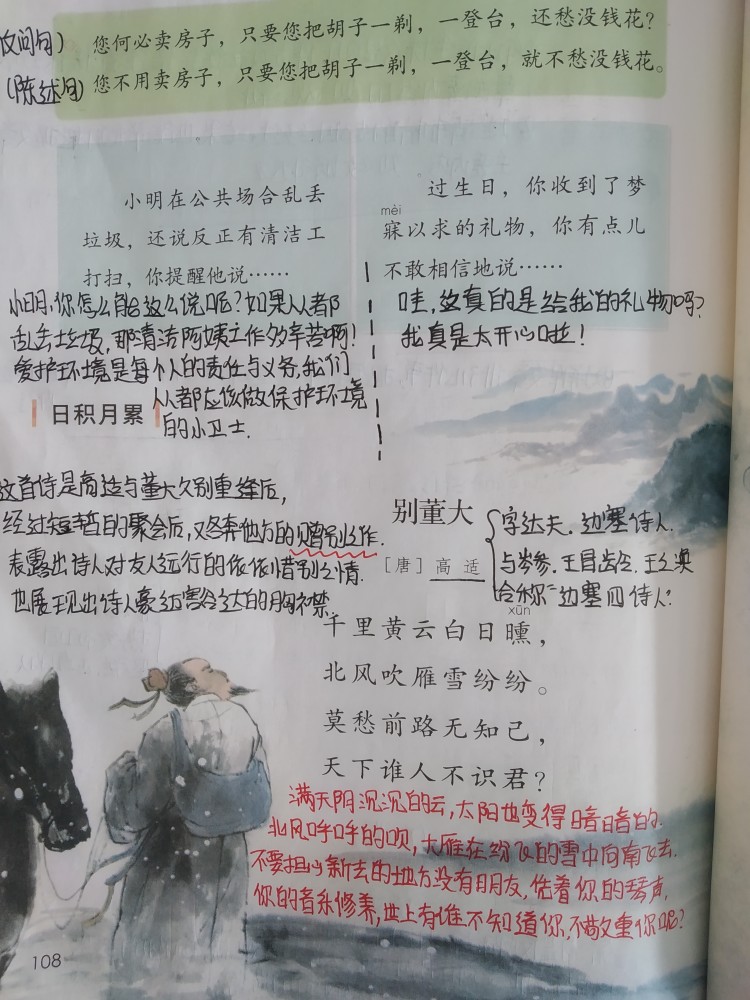 (反问句) 您何必卖房子，只要您把胡子一剃，一登台，还愁没钱花？
(陈述句) 您不用卖房子，只要您把胡子一剃，一登台，就不愁没钱花。
小明在公共场合乱丢
垃圾，还说反正有清洁工
打扫，你提醒他说……
小明，你怎么能这么说呢？如果人人都
乱丢垃圾，那清洁阿姨工作多辛苦啊！
爱护环境是每个人的责任与义务，我们
人人都应该做保护环境
的小卫士.
过生日，你收到了梦
mèi
寐以求的礼物，你有点儿
不敢相信地说……
哇，这真的是给我的礼物吗？
我真是太开心啦！
日积月累
这首诗是高适与董大久别重逢后，
经过短暂的聚会后，又各奔他方的赠别之作.
表露出诗人对友人远行的依依惜别之情.
也展现出诗人豪迈豁达的胸襟.
别董大
[唐] 高适
字达夫. 边塞诗人.
与岑参. 王昌龄. 王之涣
合称“边塞四诗人”.
xūn
千里黄云白日曛，
北风吹雁雪纷纷。
莫愁前路无知己，
天下谁人不识君？
满天阴沉沉的云，太阳也变得暗暗的.
北风呼呼的吹，大雁在纷飞的雪中向南飞去.
不要担心新去的地方没有朋友，凭着你的琴声，
你的音乐修养，世上有谁不知道你，不敬重你呢？
108